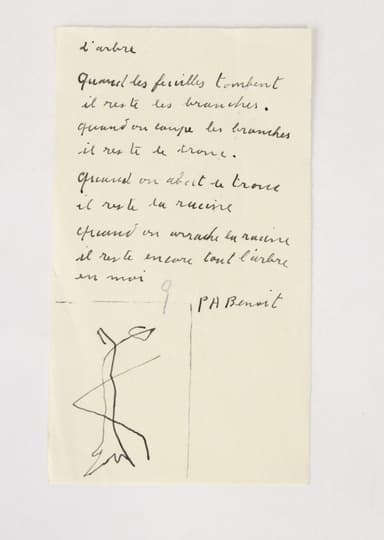 L'arbre
Quand les feuilles tombent
il reste les branches.
Quand on coupe les branches
il reste le tronc.
Quand on abat le tronc
il reste la racine
Quand on arrache la racine
il reste encore tout l'arbre
en moi
9
PA Benoit